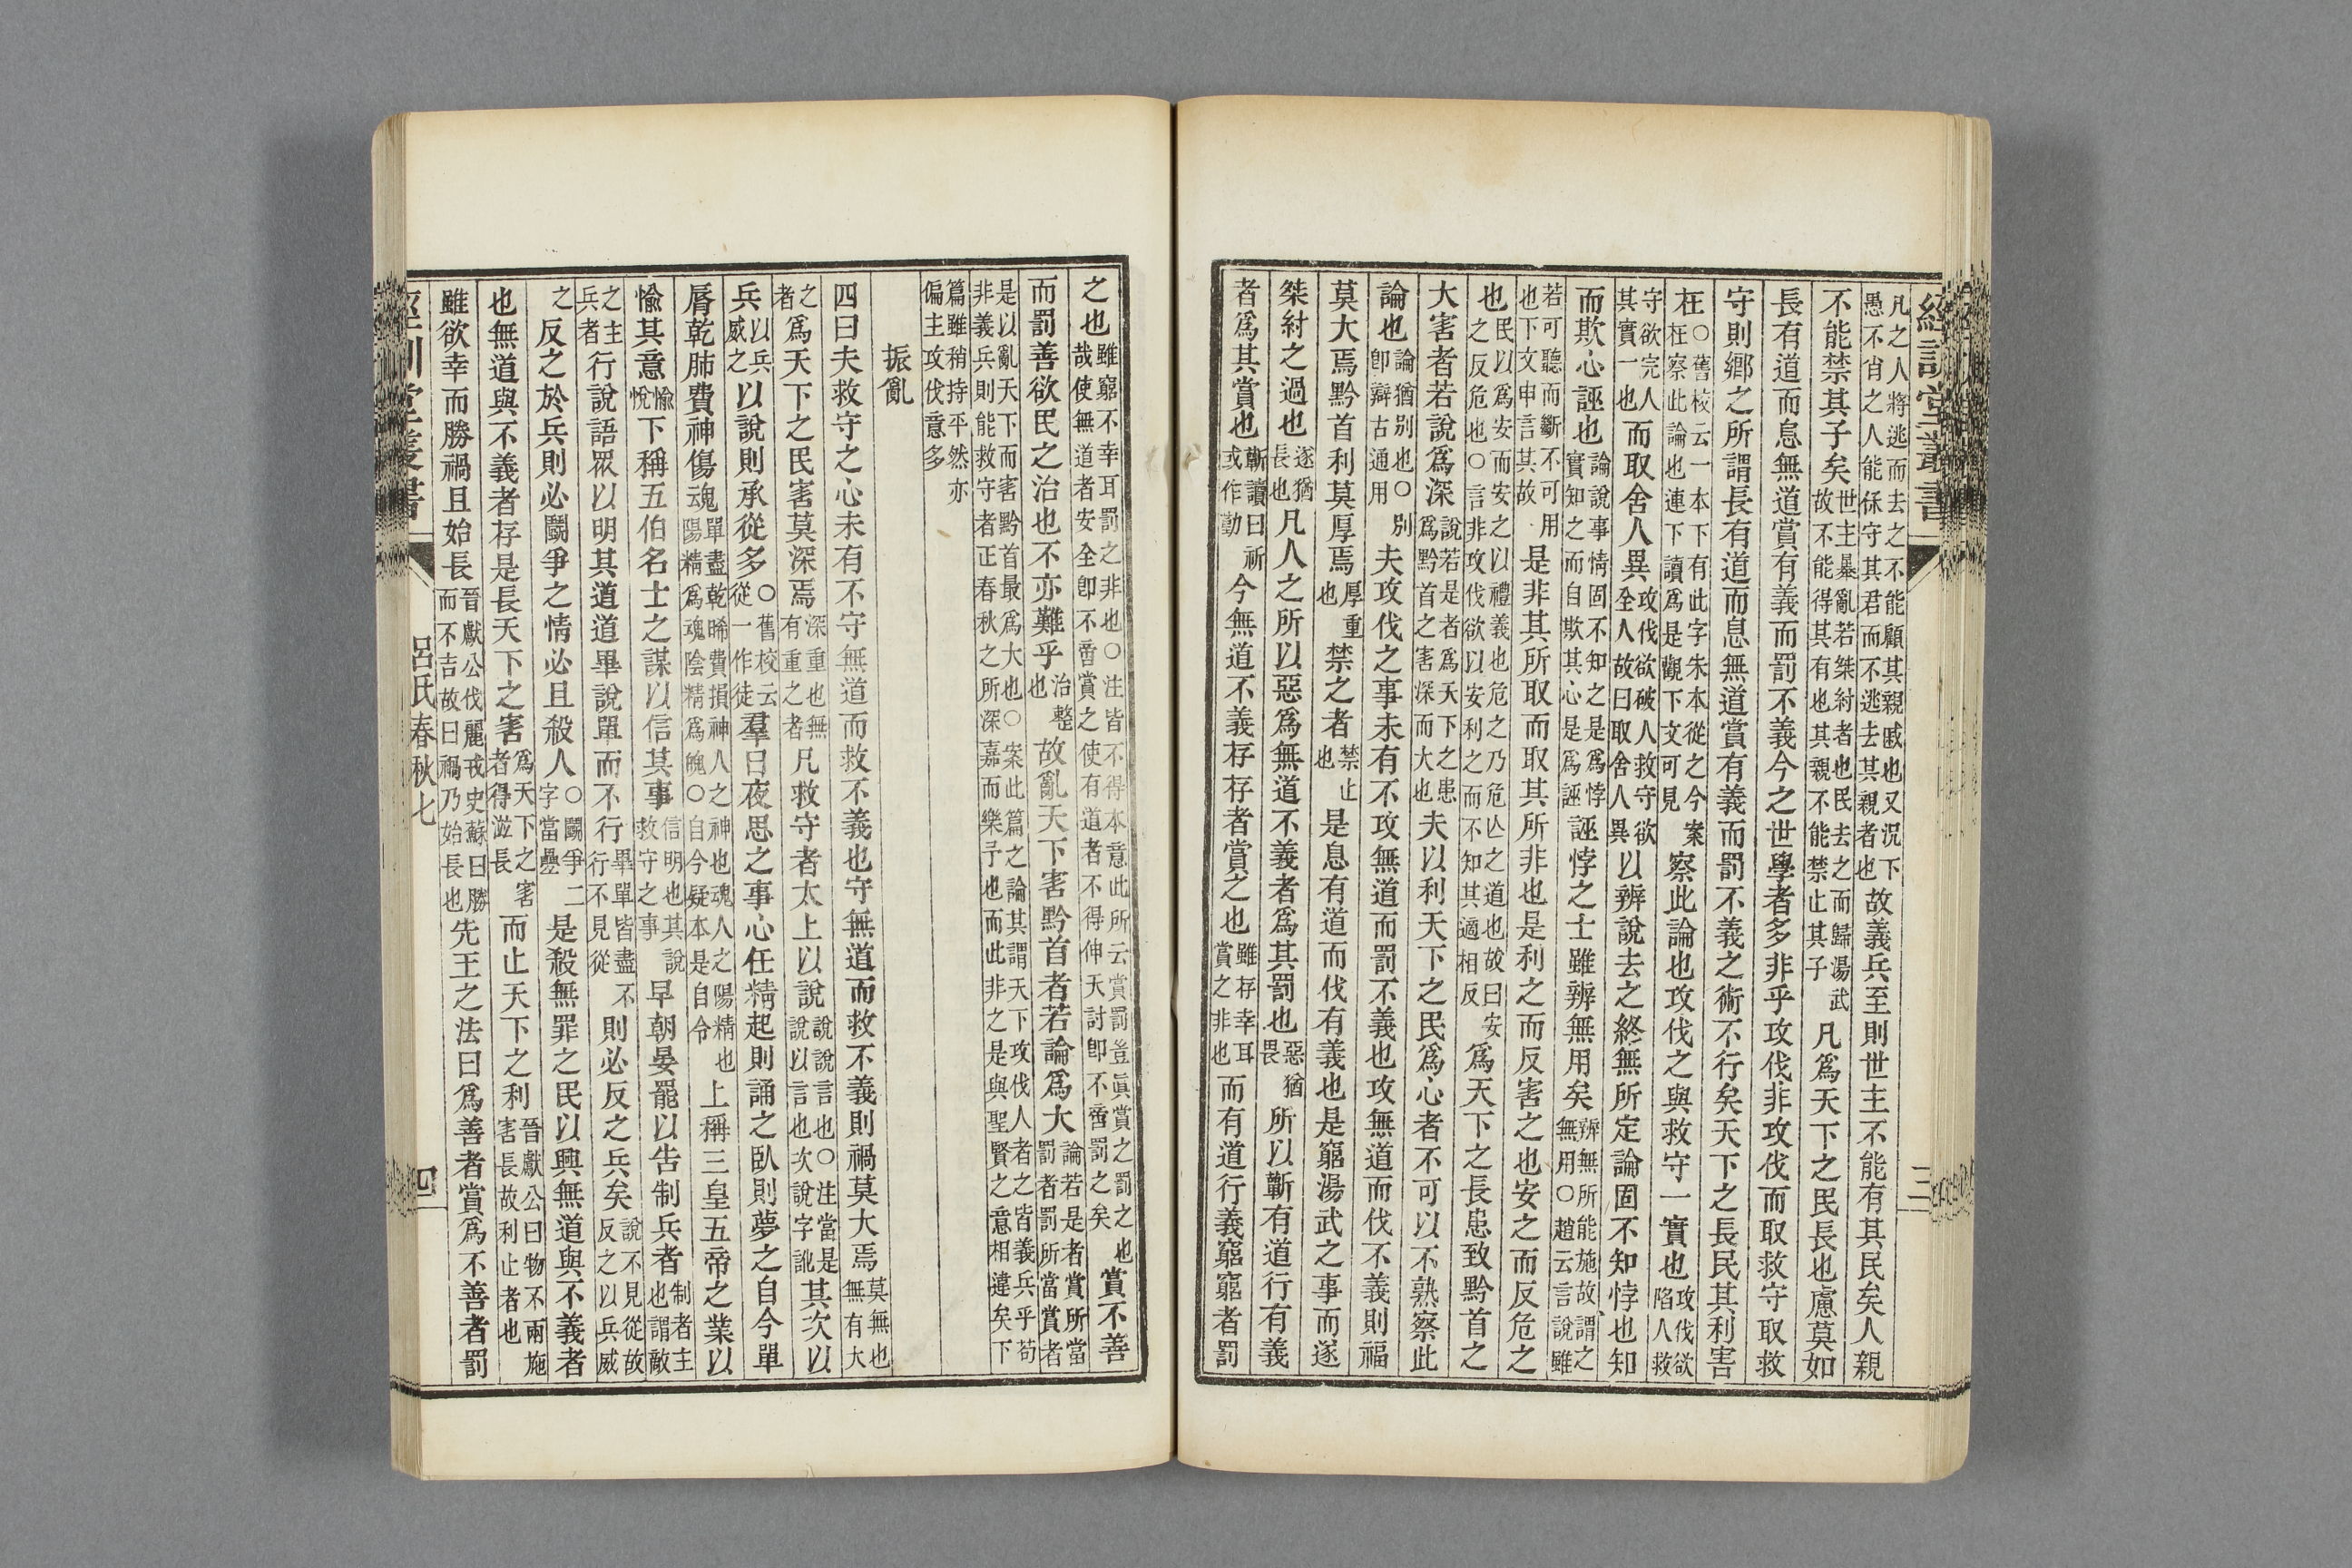 經訓堂叢書　三
凡之人將逃而去之不能顧其親戚也又況下愚不肖之人能保守其君而不逃去其親者也故義兵至則世主不能有其民矣人親
不能禁其子矣世主暴亂若桀紂者也民去之而歸湯武故不能得其有也其親不能禁止其子凡爲天下之民長也慮莫如
長有道而息無道賞有義而罰不義今之世學者多非乎攻伐非攻伐而取救守取救
守則鄉之所謂長有道而息無道賞有義而罰不義之術不行矣天下之長民其利害
在○舊校云一本下有此字朱本從之今案在察此論也連下讀爲是觀下文可見察此論也攻伐之與救守一實也攻伐欲陷人救
守欲完人其實一也而取舍人異攻伐欲破人救守欲全人故曰取舍人異以辨說去之終無所定論固不知悖也知
而欺心誣也論說事情固不知之是爲悖實知之而自欺其心是爲誣誣悖之士雖辨無用矣辨無所能施故謂之無用○趙云言說雖
若可聽而斷不可用也下文申言其故是非其所取而取其所非也是利之而反害之也安之而反危之
也民以爲安而安之以禮義也危之乃危亾之道也故曰安之反危也○言非攻伐欲以安利之而不知其適相反爲天下之長患致黔首之
大害者若說爲深說若是者爲天下之患爲黔首之害深而大也夫以利天下之民爲心者不可以不熟察此
論也論猶別也○別卽辯古通用夫攻伐之事未有不攻無道而罰不義也攻無道而伐不義則福
莫大焉黔首利莫厚焉厚重也禁之者禁止也是息有道而伐有義也是窮湯武之事而遂
桀紂之過也遂猶長也凡人之所以惡爲無道不義者爲其罰也惡猶畏所以蘄有道行有義
者爲其賞也蘄讀曰祈或作勤今無道不義存存者賞之也雖存幸耳賞之非也而有道行義窮窮者罰
之也雖窮不幸耳罰之非也○注皆不得本意此所云賞罰豈眞賞之罰之也哉使無道者安全卽不啻賞之使有道者不得伸天討卽不啻罰之矣賞不善
而罰善欲民之治也不亦難乎治整也故亂天下害黔首者若論爲大論若是者賞所當罰者罰所當賞者
是以亂天下而害黔首最爲大也○案此篇之論其謂天下攻伐人者之皆義兵乎苟非義兵則能救守者正春秋之所深嘉而樂予也而此非之是與聖賢之意相違矣下
篇雖稍持平然亦偏主攻伐意多
振亂
四曰夫救守之心未有不守無道而救不義也守無道而救不義則禍莫大焉莫無也無有大
之者爲天下之民害莫深焉深重也無有重之者凡救守者太上以說說說言也○注當是說以言也次說字訛其次以
兵以兵威之以說則承從多○舊校云從一作徒羣日夜思之事心任精起則誦之臥則夢之自今單
脣乾肺費神傷魂單盡乾晞費損神人之神也魂人之陽精也陽精爲魂陰精爲魄○自今疑本是自令上稱三皇五帝之業以
愉其意愉悅下稱五伯名士之謀以信其事信明也其說救守之事早朝晏罷以告制兵者制者主也謂敵
之主兵者行說語眾以明其道道畢說單而不行畢單皆盡不行不見從則必反之兵矣說不見從故反之以兵威
之反之於兵則必鬬爭之情必且殺人○鬬爭二字當疊是殺無罪之民以興無道與不義者
也無道與不義者存是長天下之害爲天下之害者得滋長而止天下之利晉獻公曰物不兩施害長故利止者也
雖欲幸而勝禍且始長晉獻公伐麗戎史蘇曰勝而不吉故曰禍乃始長也先王之法曰爲善者賞爲不善者罰
經訓堂叢書　呂氏春秋七　四